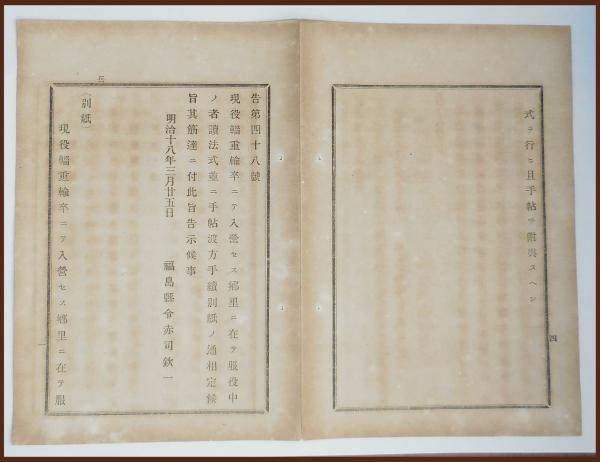 式ヲ行ヒ且手帖ヲ附與スヘシ
四
兵
告第四十八號
現役輜重輸卒ニテ入營セス鄉里ニ在テ服役中
ノ者讀法式並ニ手帖渡方手續別紙ノ通相定候
旨其筋達ニ付此旨告示候事
明治十八年三月廿五日
福島縣令赤司欽一
(別紙)
現役輜重輸卒ニテ入營セス鄉里ニ在テ服
一